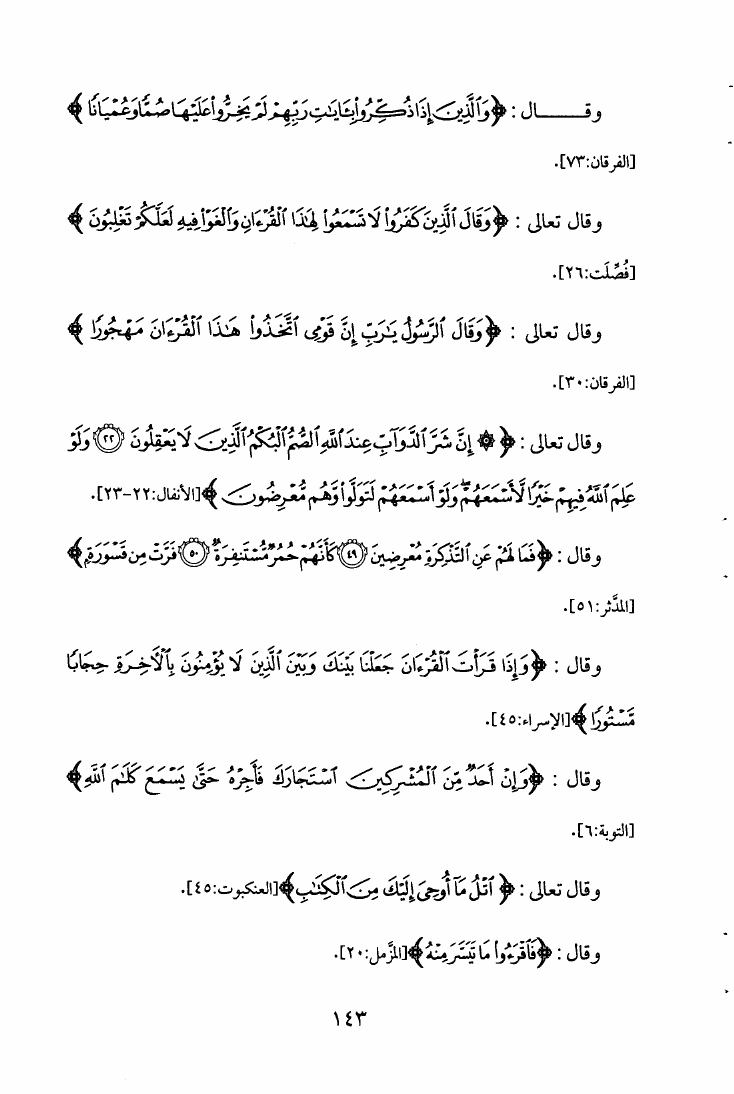 وقـــــــال : ﴿وَٱلَّذِينَ إِذَا ذُكِّرُوا۟ بِـَٔايَـٰتِ رَبِّهِمْ لَمْ يَخِرُّوا۟ عَلَيْهَا صُمًّا وَعُمْيَانًا﴾
[الفرقان:٧٣].
وقال تعالى : ﴿وَقَالَ ٱلَّذِينَ كَفَرُوا۟ لَا تَسْمَعُوا۟ لِهَـٰذَا ٱلْقُرْءَانِ وَٱلْغَوْا۟ فِيهِ لَعَلَّكُمْ تَغْلِبُونَ﴾
[فُصِّلَت:٢٦].
وقال تعالى : ﴿وَقَالَ ٱلرَّسُولُ يَـٰرَبِّ إِنَّ قَوْمِى ٱتَّخَذُوا۟ هَـٰذَا ٱلْقُرْءَانَ مَهْجُورًا﴾
[الفرقان:٣٠].
وقال تعالى : ﴿۞ إِنَّ شَرَّ ٱلدَّوَآبِّ عِندَ ٱللَّهِ ٱلصُّمُّ ٱلْبُكْمُ ٱلَّذِينَ لَا يَعْقِلُونَ ﴿٢٢﴾ وَلَوْ
عَلِمَ ٱللَّهُ فِيهِمْ خَيْرًا لَّأَسْمَعَهُمْ ۖ وَلَوْ أَسْمَعَهُمْ لَتَوَلَّوا۟ وَّهُم مُّعْرِضُونَ﴾ [الأنفال:٢٢-٢٣].
وقال : ﴿فَمَا لَهُمْ عَنِ ٱلتَّذْكِرَةِ مُعْرِضِينَ ﴿٤٩﴾ كَأَنَّهُمْ حُمُرٌ مُّسْتَنفِرَةٌ ﴿٥٠﴾ فَرَّتْ مِن قَسْوَرَةٍ﴾
[المدَّثر:٥١].
وقال : ﴿وَإِذَا قَرَأْتَ ٱلْقُرْءَانَ جَعَلْنَا بَيْنَكَ وَبَيْنَ ٱلَّذِينَ لَا يُؤْمِنُونَ بِٱلْـَٔاخِرَةِ حِجَابًا
مَّسْتُورًا﴾ [الإسراء:٤٥].
وقال : ﴿وَإِنْ أَحَدٌ مِّنَ ٱلْمُشْرِكِينَ ٱسْتَجَارَكَ فَأَجِرْهُ حَتَّىٰ يَسْمَعَ كَلَـٰمَ ٱللَّهِ﴾
[التوبة:٦].
وقال تعالى : ﴿ٱتْلُ مَآ أُوحِىَ إِلَيْكَ مِنَ ٱلْكِتَـٰبِ﴾ [العنكبوت:٤٥].
وقال : ﴿فَٱقْرَءُوا۟ مَا تَيَسَّرَ مِنْهُ﴾ [المزَّمل:٢٠].
١٤٣